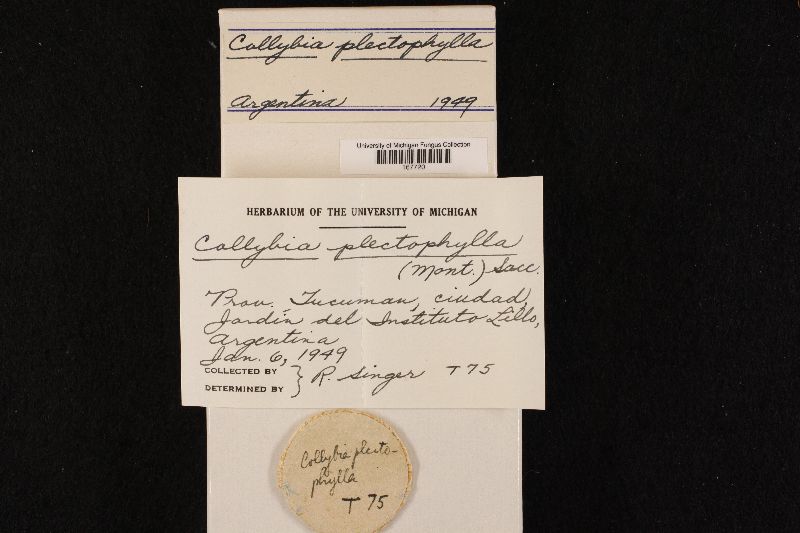 Collybia plectophylla
Argentina 1949
University of Michigan Fungus Collection
167720
HERBARIUM OF THE UNIVERSITY OF MICHIGAN
Collybia plectophylla
(Mont.) Sacc.
Prov. Tucumán, ciudad,
Jardín del Instituto Lillo,
Argentina
Jan. 6, 1949
COLLECTED BY
DETERMINED BY } R. Singer T 75
Collybia plecto-
phylla
T 75